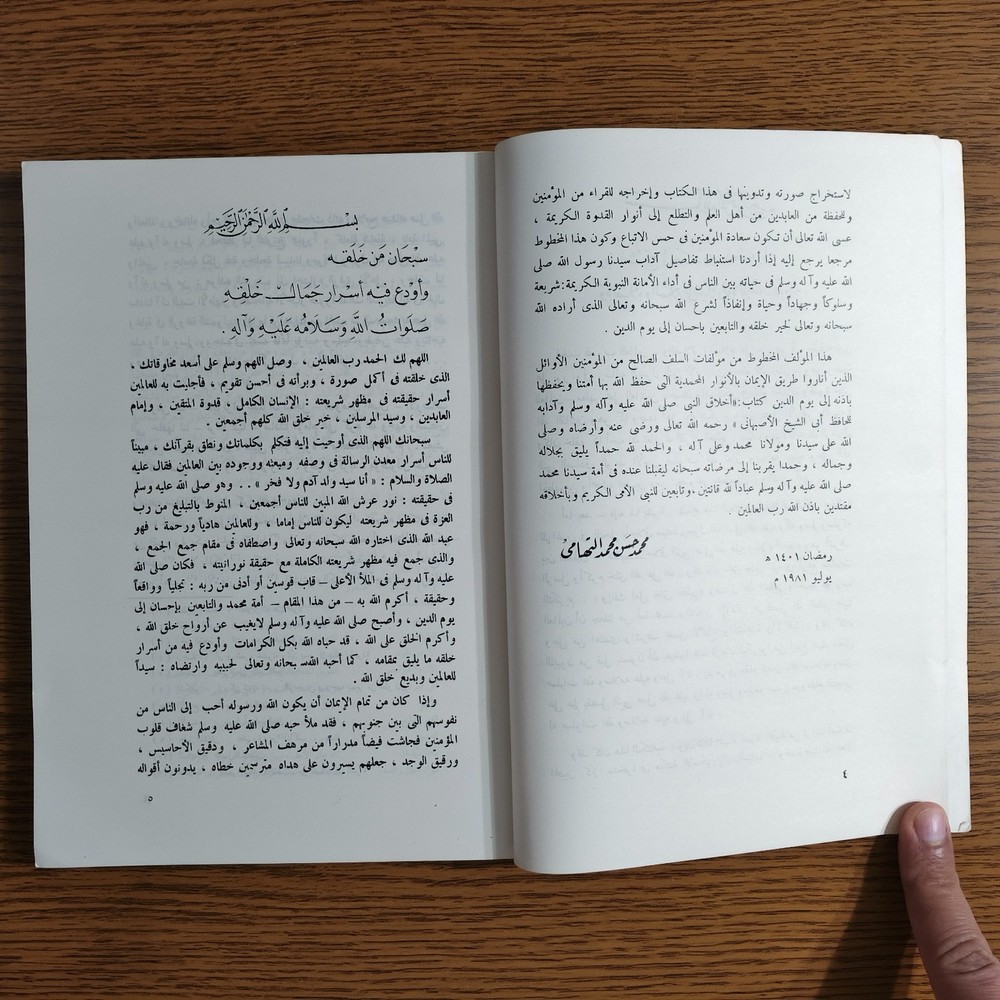 لاستخراج صورته وتدوينها فى هذا الكتاب وإخراجه للقراء من المؤمنين
وللحفظة من العابدين من أهل العلم والتطلع إلى أنوار القدوة الكريمة ،
عسى الله تعالى أن تكون سعادة المؤمنين فى حسن الاتباع وكون هذا المخطوط
مرجعا يرجع إليه إذا أردنا استنباط تفاصيل آداب سيدنا رسول الله صلى
الله عليه وآله وسلم فى حياته بين الناس فى أداء الأمانة النبوية الكريمة : شريعة
وسلوكاً وجهاداً وحياة وإنفاذاً لشرع الله سبحانه وتعالى الذى أراده الله
سبحانه وتعالى لخير خلقه والتابعين بإحسان إلى يوم الدين .
هذا المؤلف المخطوط من مؤلفات السلف الصالح من المؤمنين الأوائل
الذين أناروا طريق الإيمان بالأنوار المحمدية التى حفظ الله بها أمتنا ويحفظها
باذنه إلى يوم الدين كتاب : «أخلاق النبى صلى الله عليه وآله وسلم وآدابه
للحافظ أبى الشيخ الأصبهانى » رحمه الله تعالى ورضى عنه وأرضاه وصلى
الله على سيدنا ومولانا محمد وعلى آله ، والحمد لله حمداً يليق بجلاله
وجماله ، وحمدا يقربنا إلى مرضاته سبحانه ليقبلنا عنده فى أمة سيدنا محمد
صلى الله عليه وآله وسلم عباداً لله قانتين ، وتابعين للنبى الأمى الكريم وبأخلاقه
مقتدين باذن الله رب العالمين .
رمضان ١٤٠١ هـ
يوليو ١٩٨١ م
محمد حسن محمد التهامى
٤
بسم الله الرحمن الرحيم
سبحان من خلقه
وأودع فيه أسرار جمال خلقه
صلوات الله وسلامه عليه وآله .
اللهم لك الحمد رب العالمين ، وصلى اللهم وسلم على أسعد مخلوقاتك ،
الذى خلقته فى أكمل صورة ، وبرأته فى أحسن تقويم ، فأجليت به للعالمين
أسرار حقيقته فى مظهر شريعته : الإنسان الكامل ، قدوة المتقين ، وإمام
العابدين ، وسيد المرسلين ، خير خلق الله كلهم أجمعين .
سبحانك اللهم الذى أوحيت إليه فتكلم بكلماتك ونطق بقرآنك ، مبيناً
للناس أسرار معدن الرسالة فى وصفه ومبعثه ووجوده بين العالمين فقال عليه
الصلاة والسلام : « أنا سيد ولد آدم ولا فخر » . . وهو صلى الله عليه وسلم
فى حقيقته : نور عرش الله المبين للناس أجمعين ، المنوط بالتبليغ من رب
العزة فى مظهر شريعته ليكون للناس إماما ، وللعالمين هادياً ورحمة ، فهو
عبد الله الذى اختاره الله سبحانه وتعالى واصطفاه فى مقام جمع الجمع ،
والذى جمع فيه مظهر شريعته الكاملة مع حقيقة نورانيته ، فكان صلى الله
عليه وآله وسلم فى الملأ الأعلى – قاب قوسين أو أدنى من ربه : تجلياً وواقعاً
وحقيقة ، أكرم الله به – من هذا المقام – أمة محمد والتابعين بإحسان إلى
يوم الدين ، وأصبح صلى الله عليه وآله وسلم لايغيب عن أرواح خلق الله ،
وأكرم الخلق على الله ، قد حباه الله بكل الكرامات وأودع فيه من أسرار
خلقه ما يليق بمقامه ، كما أحبه الله سبحانه وتعالى لحبيبه وارتضاه : سيداً
للعالمين وبديع خلق الله .
وإذا كان من تمام الإيمان أن يكون الله ورسوله أحب إلى الناس من
نفوسهم التى بين جنوبهم ، فقد ملأ حبه صلى الله عليه وسلم شغاف قلوب
المؤمنين فجاشت فيضاً مدراراً من مرهف المشاعر ، ودقيق الأحاسيس ،
ورقيق الوجد ، جعلهم يسيرون على هداه مترسمين خطاه ، يدونون أقواله
٥